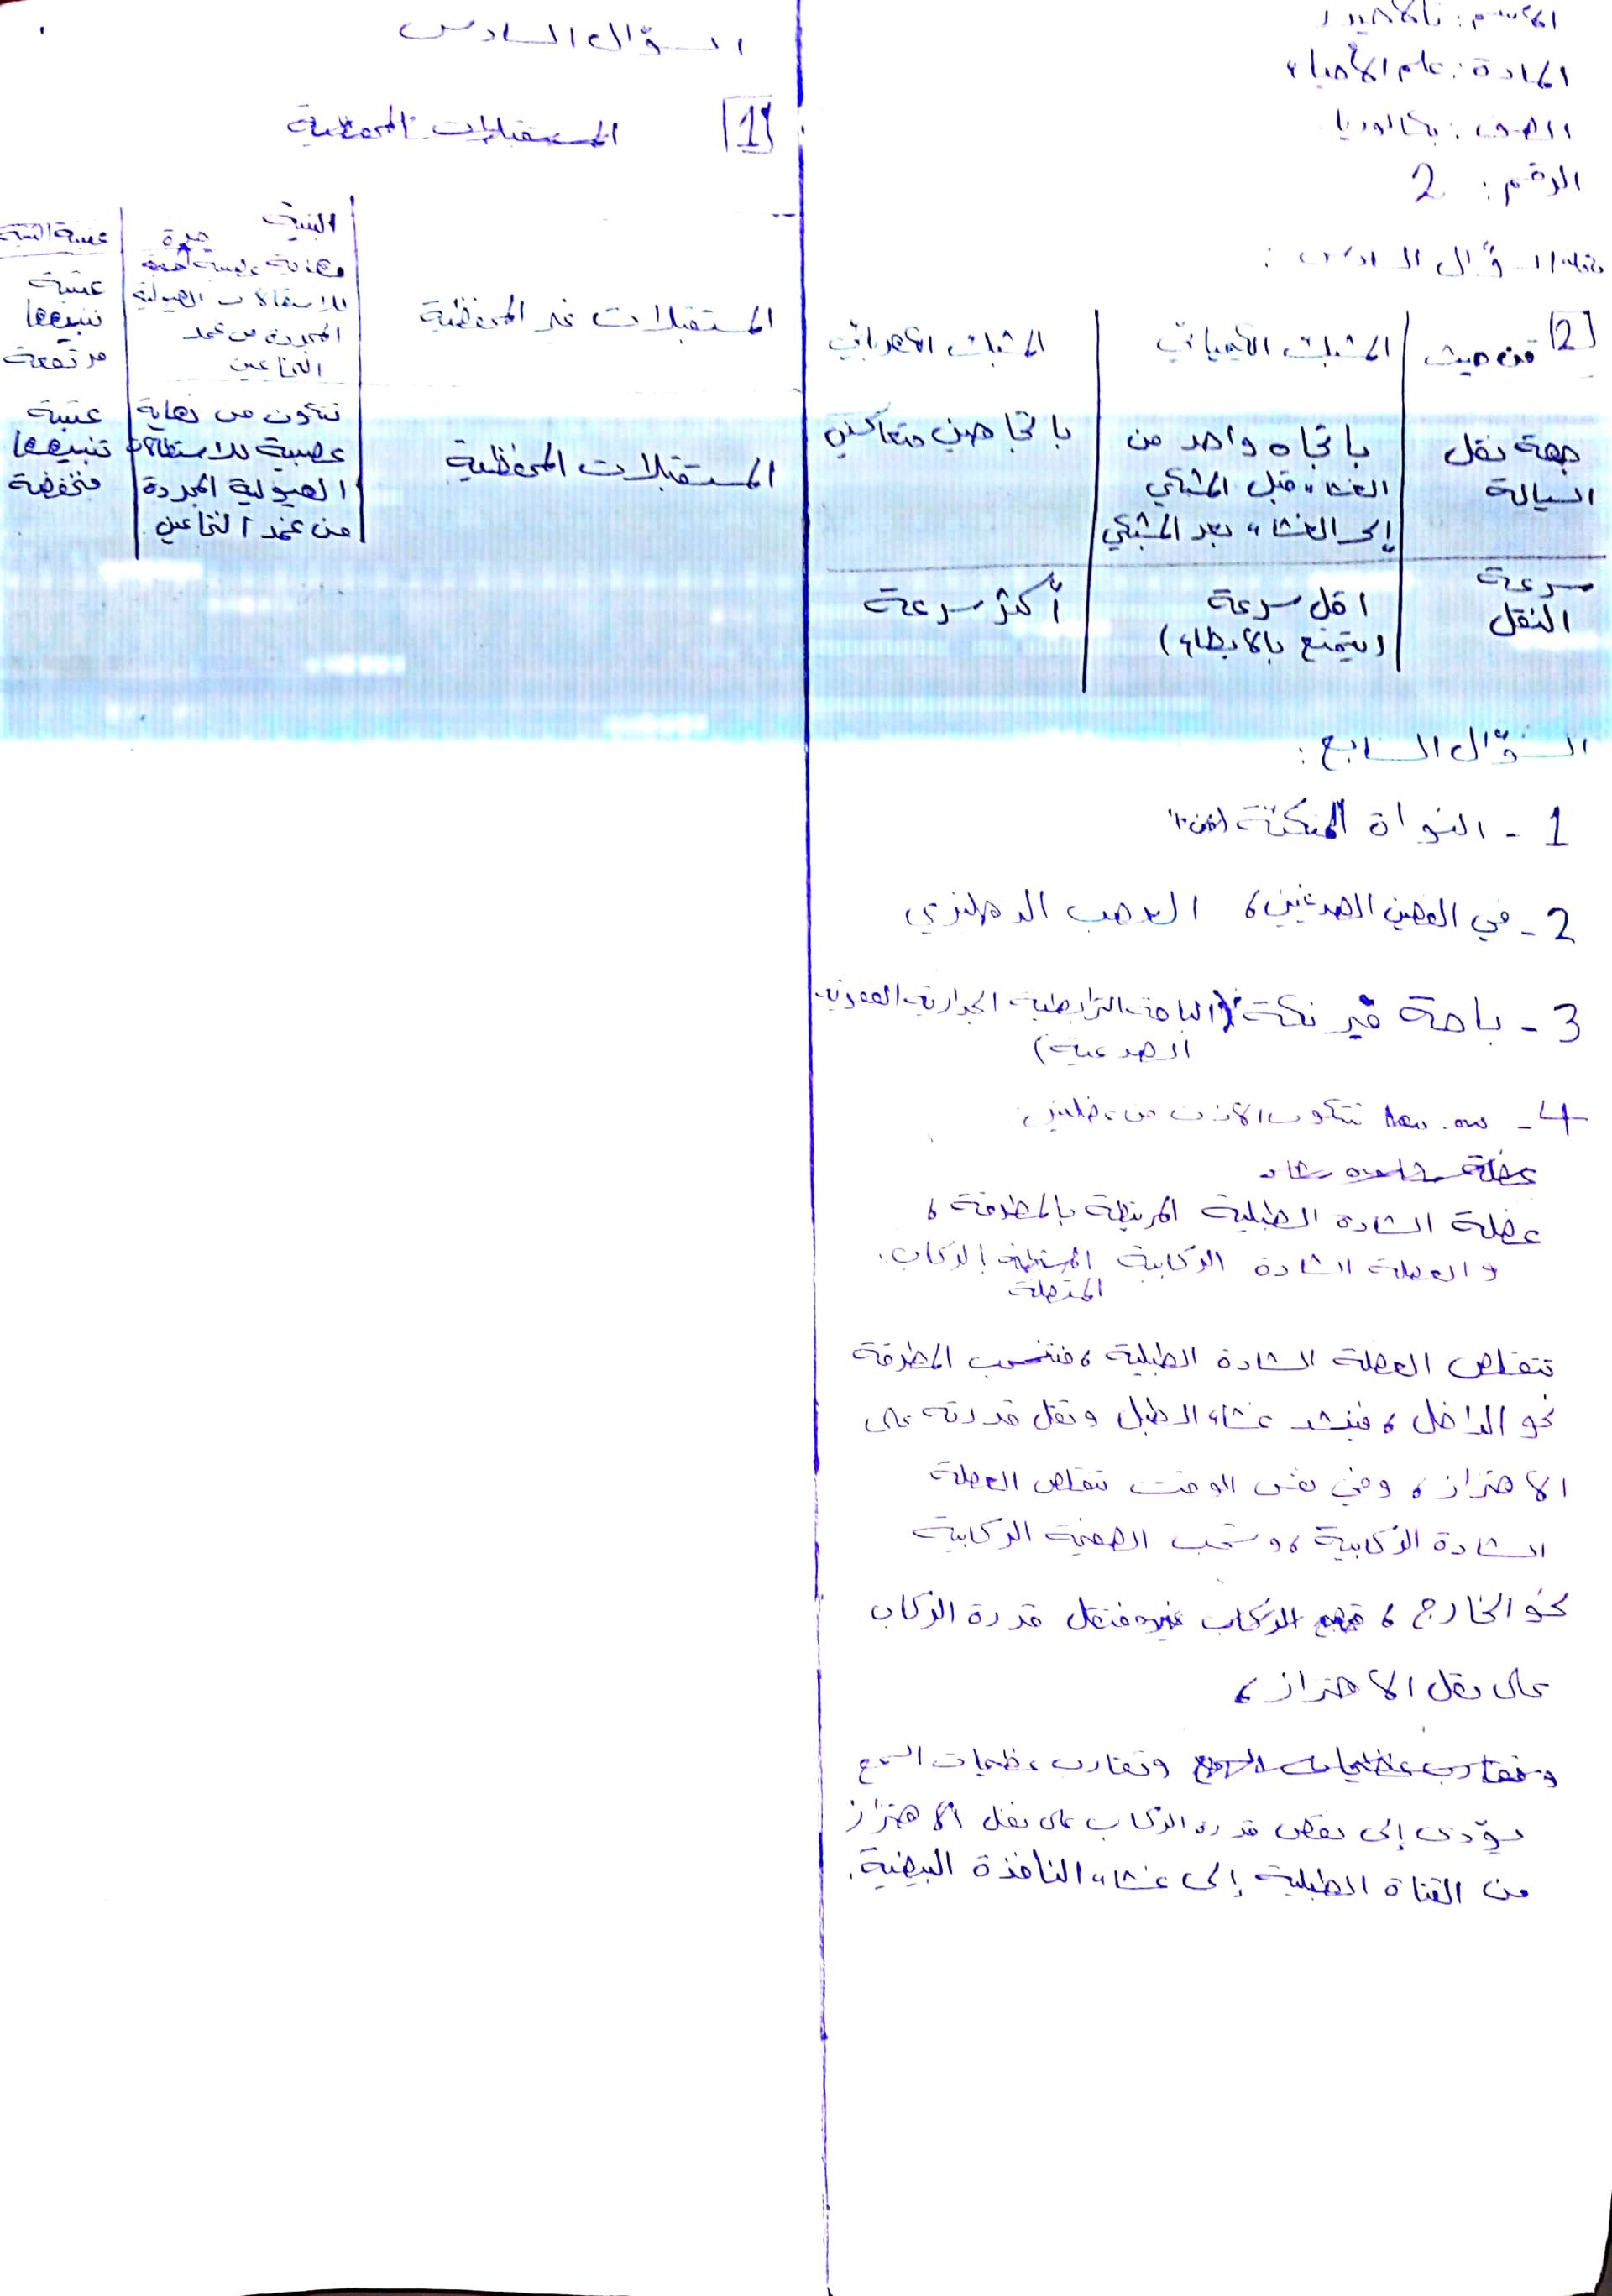 المادة: علم الأحياء
الصف: بكالوريا
الرقم: 2
السؤال السادس
[1] المستقبلات المحفظية
البنية
عتبة التنبيه
المستقبلات غير المحفظية
نهاية عصبية حرة
للاستطالات الهيولية
المجردة من غمد
النخاعين
عتبة
تنبيهها
مرتفعة
المستقبلات المحفظية
تتكون من نهاية
عصبية للاستطالات
الهيولية المجردة
من غمد النخاعين
عتبة
تنبيهها
منخفضة
السؤال السادس:
[2] من حيث
المشبك الكيميائي
المشبك الكهربائي
جهة نقل
السيالة
باتجاه واحد من
الغشاء قبل المشبكي
إلى الغشاء بعد المشبكي
باتجاهين متعاكسين
سرعة
النقل
اقل سرعة
(يتمتع بالابطاء)
أكثر سرعة
السؤال السابع:
1 - النواة المنكتة
2 - في الفصين الصدغيين، العصب الدهليزي
3 - باحة فيرنكة (الباحة الترابطية الجدارية القفوية
الصدغية)
4 - تتكون الأذن من عضلتين
عضلة
عضلة الشادة الطبلية المرتبطة بالمطرقة،
و العضلة الشادة الركابية المرتبطة بالركاب.
المتصلة
تتقلص العضلة الشادة الطبلية، فتنسحب المطرقة
نحو الداخل، فيشد غشاء الطبل وتقل قدرته على
الاهتزاز، وفي نفس الوقت تتقلص العضلة
الشادة الركابية، وتسحب الصفيحة الركابية
نحو الخارج، الركاب فتقل قدرة الركاب
على نقل الاهتزاز،
وتقارب عظيمات السمع وتقارب عظيمات السمع
يؤدي إلى نقص قدرة الركاب على نقل الاهتزاز
من القناة الطبلية إلى غشاء النافذة البيضية.